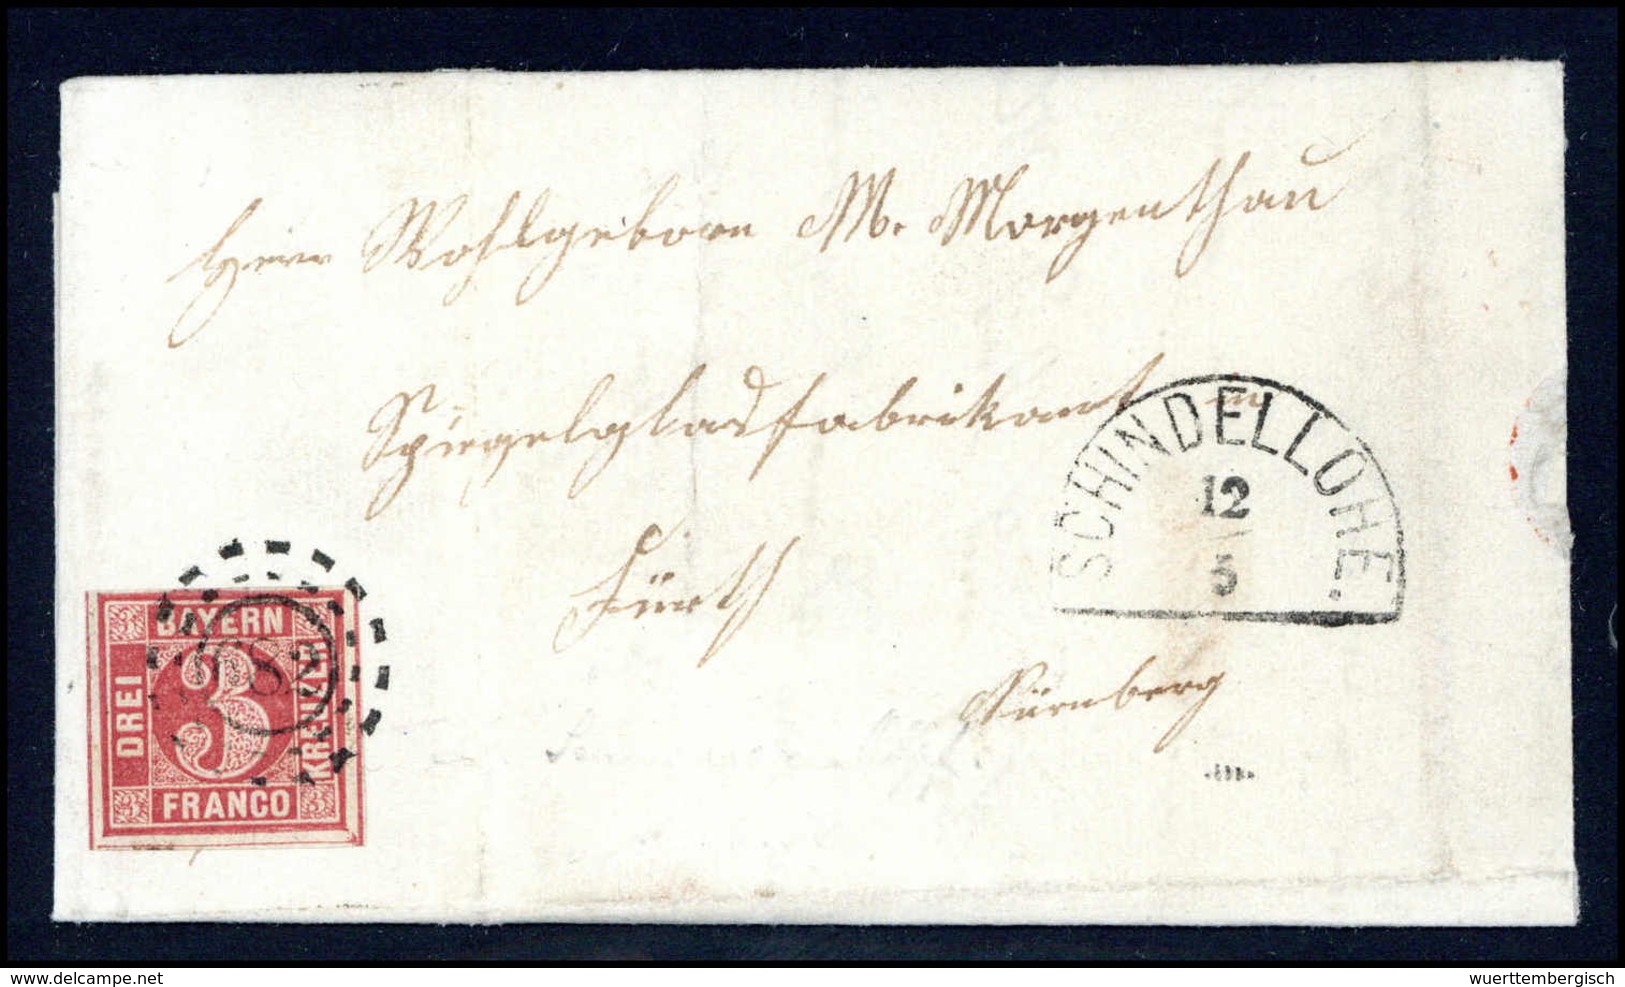 Herr Wohlgeborn M. Morgenthau
Spiegelglasfabrikant in
Fürth
Nürnberg
SCHINDELLOHE.
12
5
BAYERN
DREI
3
KREUZER
FRANCO
3
3
3
682
www.delcampe.net
wuerttembergisch